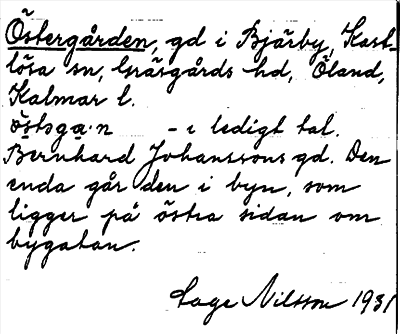 Östergården, gd i Bjärby, Kast-
lösa sn, Gräsgårds hd, Öland,
Kalmar l.
östsga·n -ɛ ledigt tal.
Bernhard Johanssons gd. Den
enda går den i byn, som
ligger på östra sidan om
bygatan.
Lage Nilsson 1931